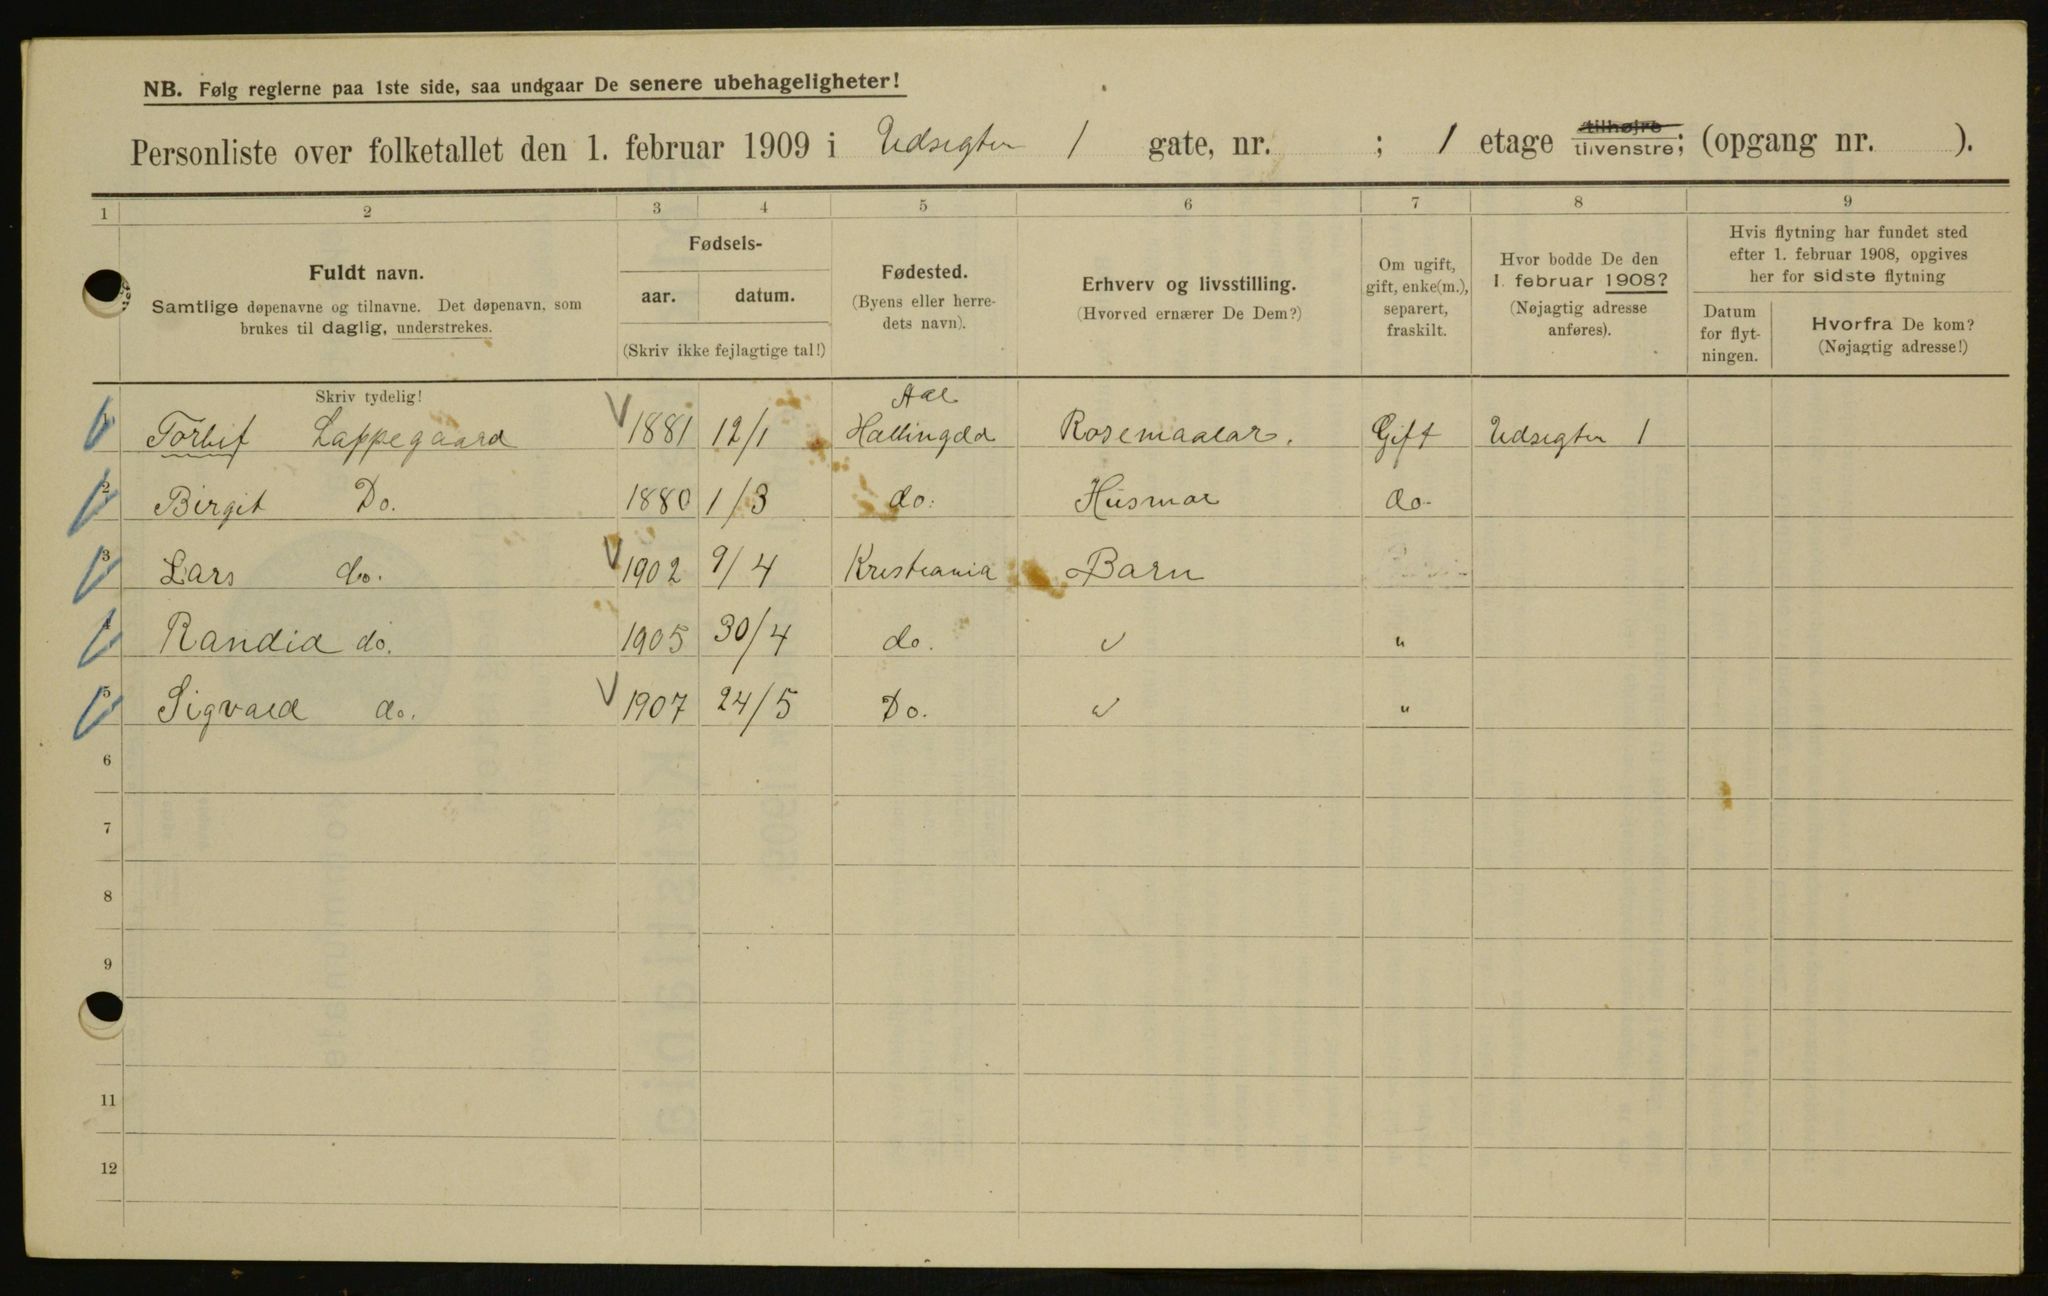 NB. Følg reglerne paa 1ste side, saa undgaar De senere ubehageligheter!
Personliste over folketallet den 1. februar 1909 i Udsigten 1 gate, nr. ; 1 etage tilhøjre tilvenstre; (opgang nr. ).
1 2 3 4 5 6 7 8 9
Fuldt navn.
Samtlige døpenavne og tilnavne. Det døpenavn, som
brukes til daglig, understrekes.
Fødsels-
aar. datum.
(Skriv ikke fejlagtige tal!)
Fødested.
(Byens eller herre-
dets navn).
Erhverv og livsstilling.
(Hvorved ernærer De Dem?)
Om ugift,
gift, enke(m.),
separert,
fraskilt.
Hvor bodde De den
1. februar 1908?
(Nøjagtig adresse
anføres).
Hvis flytning har fundet sted
efter 1. februar 1908, opgives
her for sidste flytning
Datum
for flyt-
ningen.
Hvorfra De kom?
(Nøjagtig adresse!)
Skriv tydelig!
Aal
1 Torbif Lappegaard 1881 12/1 Hallingdal Rosemaalar. Gift Udsigten 1
2 Birgit Do. 1880 1/3 do. Husmor do.
3 Lars do. 1902 9/4 Kristiania Barn
4 Randid do. 1905 30/4 do. " "
5 Sigvald do. 1907 24/5 Do. " "
6
7
8
9
11
12